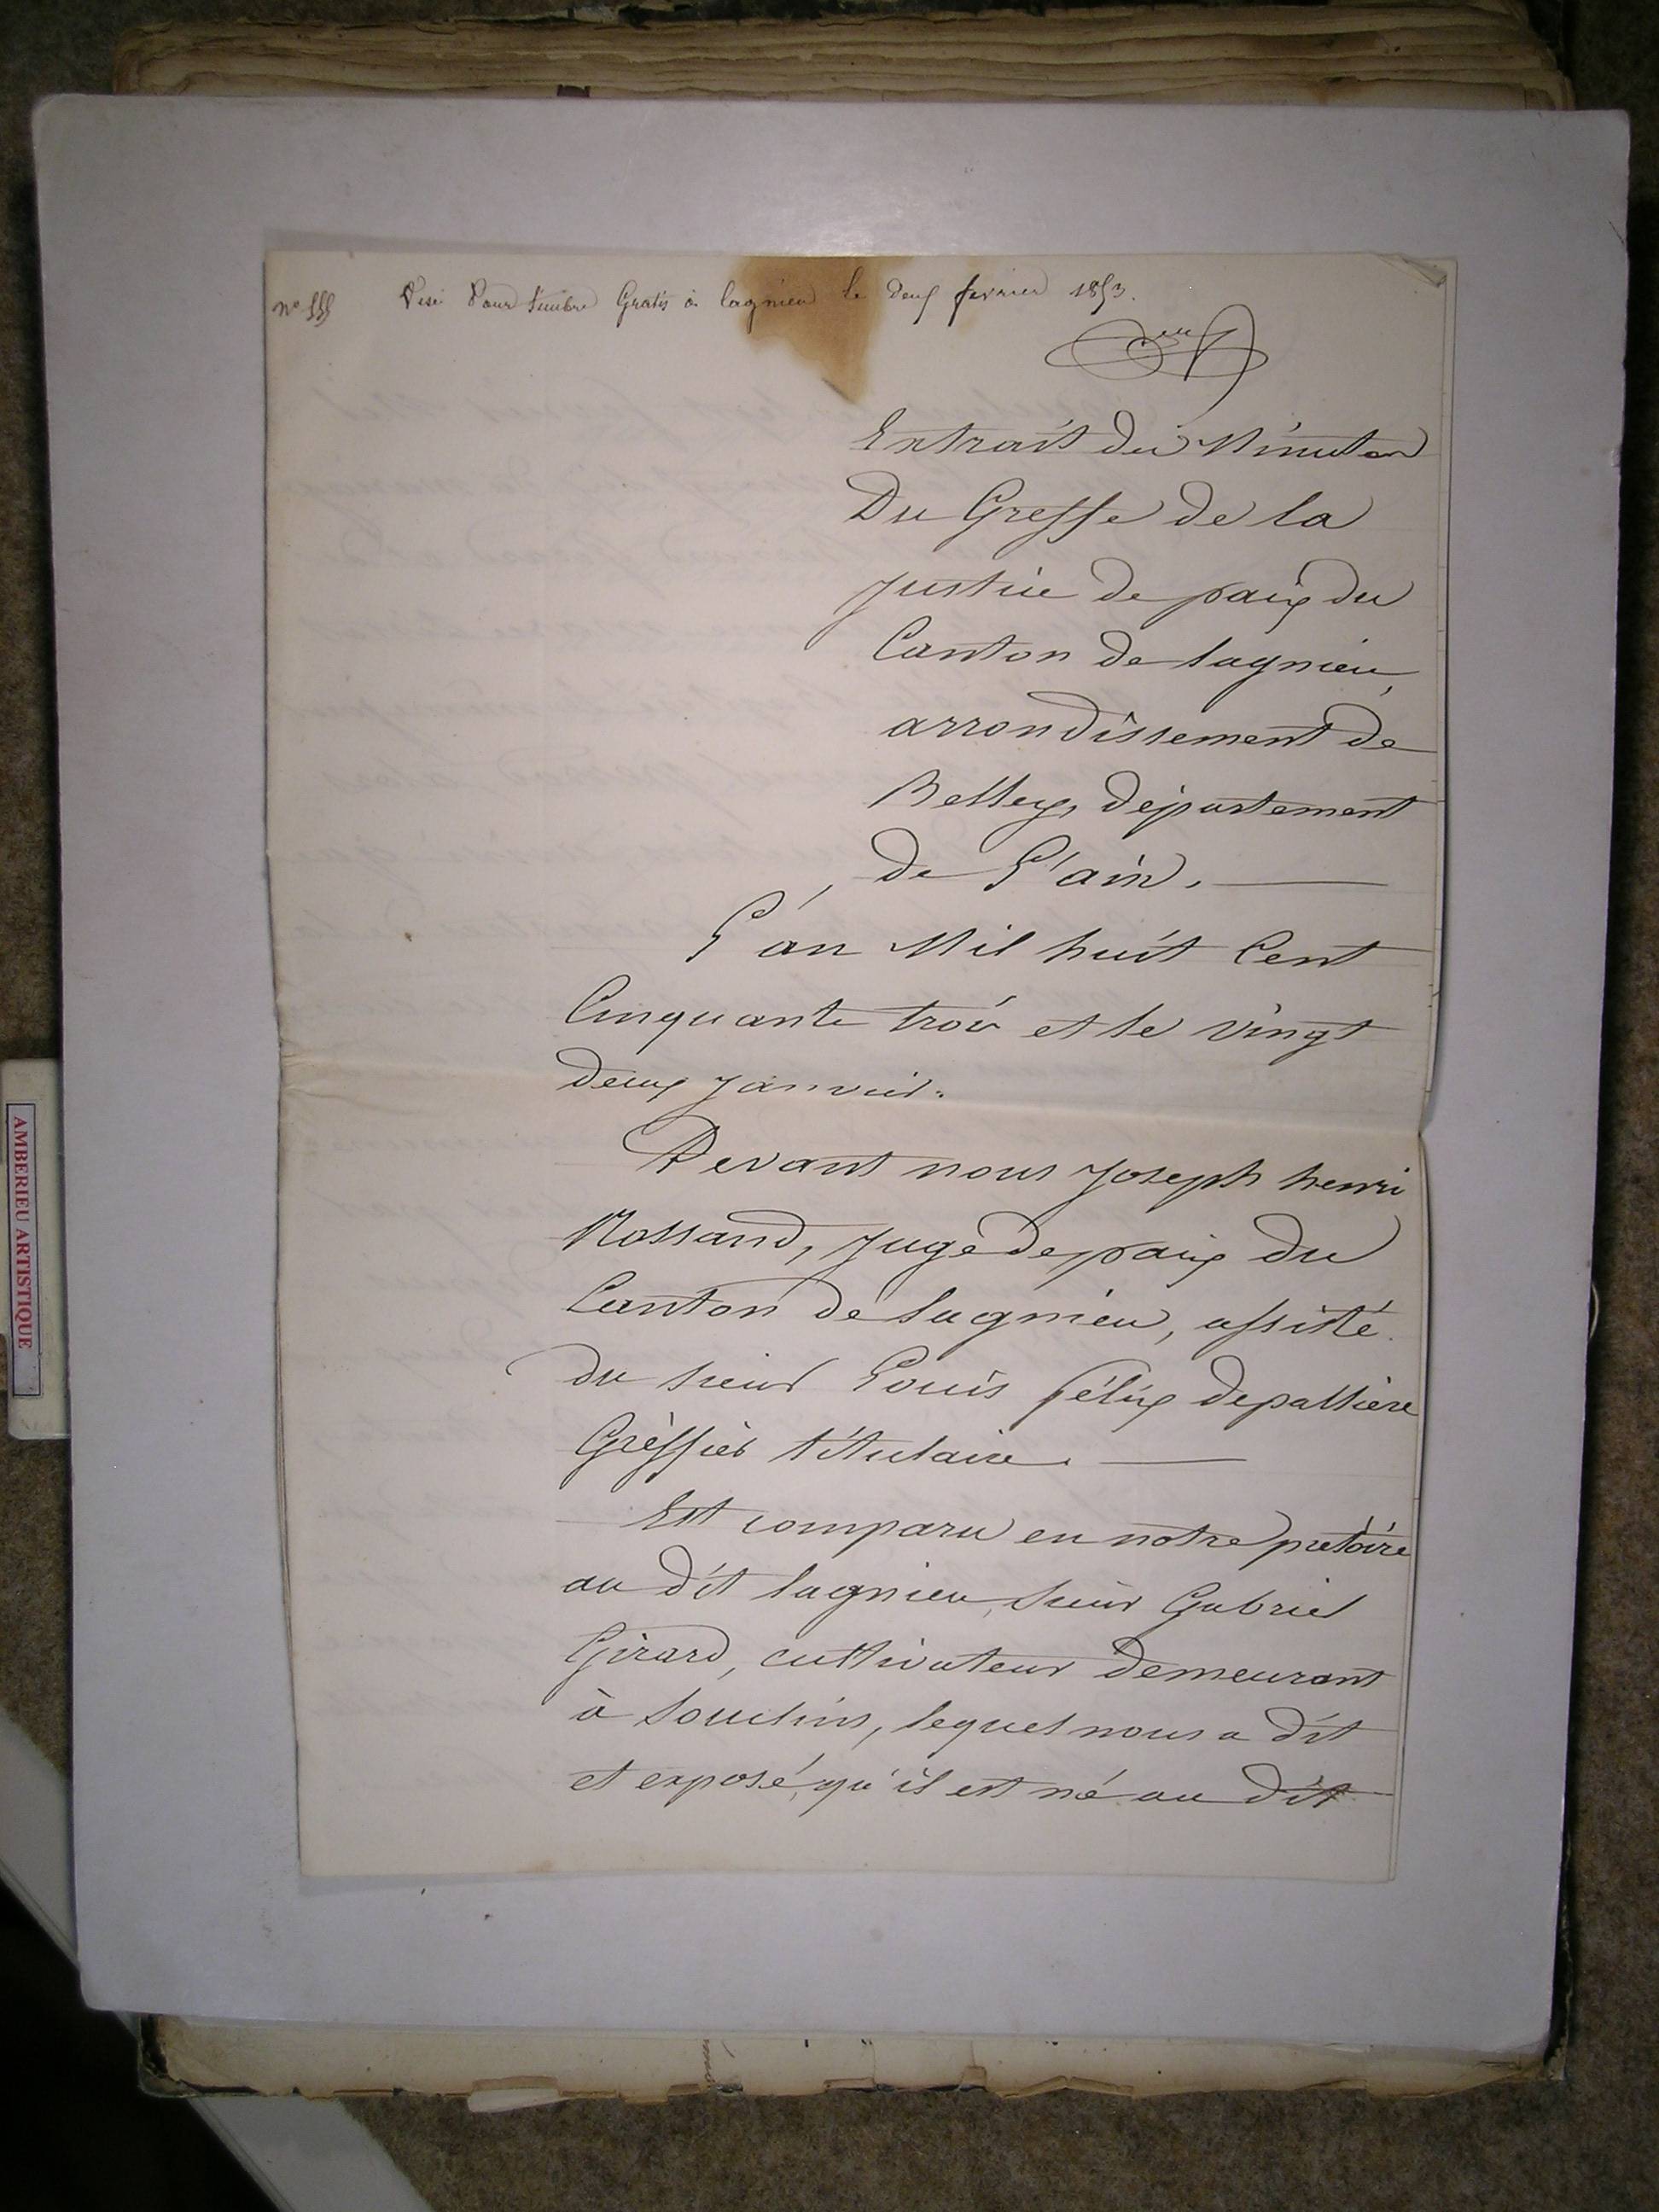 n° 555 Visé Pour timbre Gratis à lagnieu le deux fevrier 1853.
Extrait des Minutes
Du Greffe de la
Justice de paix du
Canton de lagnieu,
arrondissement de
Belley, département
de L'ain.
L'an Mil huit Cent
Cinquante trois et le vingt
deux Janvier.
Devant nous Joseph henri
Rossand, Juge de paix du
Canton de lagnieu, assisté
du sieur Louis félix depallière
Greffier titulaire.
Est comparu en notre prétoire
au dit lagnieu, sieur Gabriel
Girard, cultivateur demeurant
à Souclins, lequel nous a dit
et exposé, qu'il est né au dit
AMBERIEU ARTISTIQUE